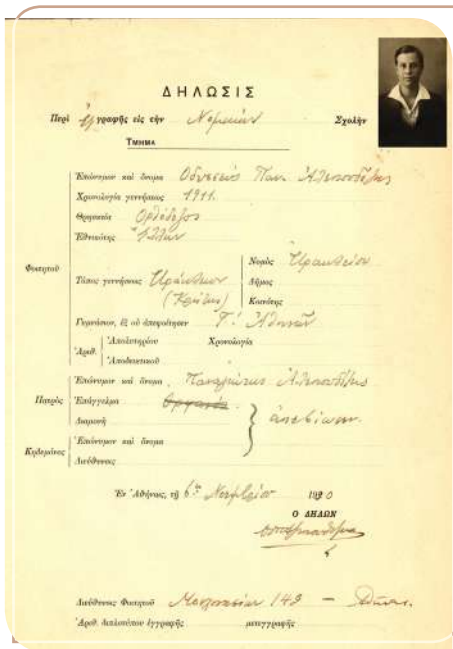 ΔΗΛΩΣΙΣ
Περὶ ἐγγραφῆς εἰς τὴν Νομικὴν Σχολὴν
ΤΜΗΜΑ
Φοιτητοῦ
Ἐπώνυμον καὶ ὄνομα Ὀδυσσεὺς Παν. Ἀλεπουδέλης
Χρονολογία γεννήσεως 1911.
Θρησκεία Ὀρθόδοξος
Ἐθνικότης Ἕλλην
Τόπος γεννήσεως Ἡράκλειον
(Κρήτης)
Νομὸς Ἡρακλείου
Δῆμος
Κοινότης
Γυμνάσιον, ἐξ οὗ ἀπεφοίτησεν Γ! Ἀθηνῶν
Ἀριθ.
Ἀπολυτηρίου Χρονολογία
Ἀποδεικτικοῦ
Πατρὸς
Ἐπώνυμον καὶ ὄνομα Παναγιώτης Ἀλεπουδέλης
Ἐπάγγελμα
Διαμονὴ ἀπεβίωσεν.
Κηδεμόνος
Ἐπώνυμον καὶ ὄνομα
Διεύθυνσις
Ἐν Ἀθήναις, τῇ 6ῃ Νοεμβρίου 1930
Ο ΔΗΛΩΝ
Διεύθυνσις Φοιτητοῦ 148 —
Ἀριθ. διπλοτύπου ἐγγραφῆς μετεγγραφῆς